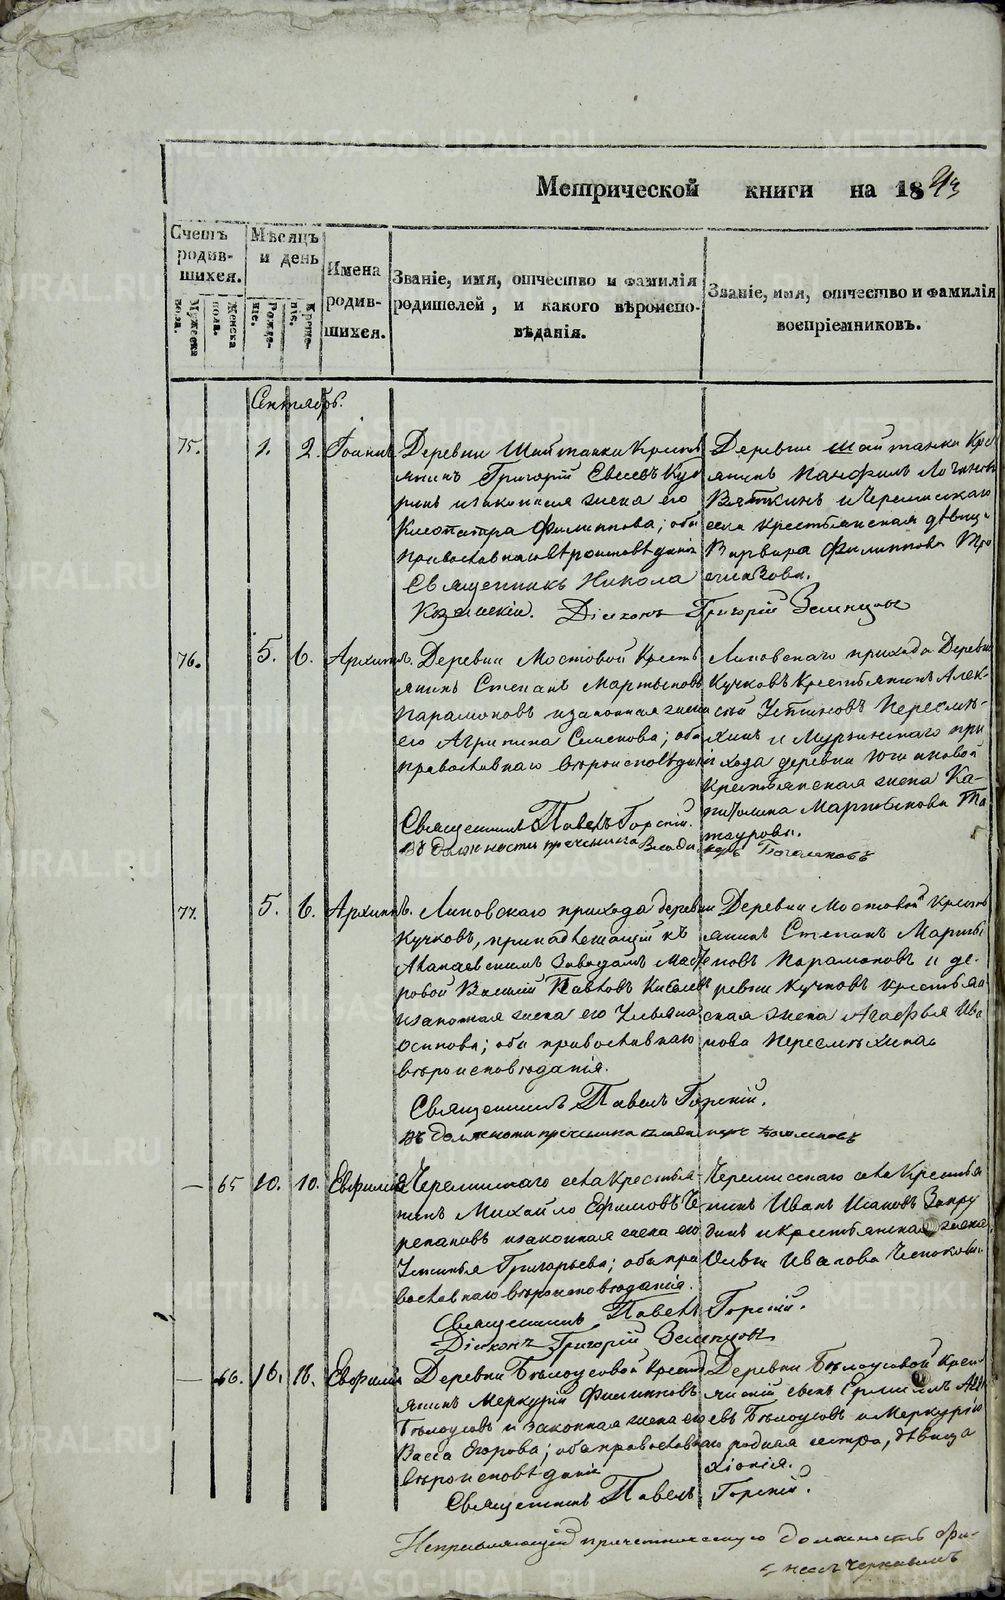 Метрической книги на 1893
Счетъ родив-шихся.
Мѣсяцъ и день
Имена родив-шихся.
Званіе, имя, отчество и фамилія родителей, и какого вѣроиспо-вѣданія.
Званіе, имя, отчество и фамилія воспріемниковъ.
Мужеска пола.
Женска пола.
Рожде-ніе.
Креще-ніе.
Сентябрь.
75. 1. 2. Іоаннъ
Деревни Шайтанки Крестъ
янинъ Григорій Евсеевъ
ринъ и законная жена его
Клеопатра Филиппова; оба
православнаго вѣроисповѣданія
Священникъ Никола
Деревни Шайтанки Крес
янинъ Панфилъ Логиновъ
Вяткинъ и Черемискаго
села крестьянская дѣвица
Варвара Филиппова
Діаконъ Григорій Зеленцовъ
76. 5. 6. Архиппъ.
Деревни Мостовой Кресть
янинъ Степанъ Мартыновъ
Парамоновъ и законная жена
его Агрипина Семенова; оба
православнаго вѣроисповѣданія
Священникъ Павелъ Горскій.
Въ должности причетника Влади
Липовскаго прихода Деревни
Кучковъ Крестьянинъ Алек-
сѣй Устиновъ Пересмѣ-
хинъ и Мурзинскаго при
хода деревни
крестьянская жена Ка-
питолина Мартынова Та
таурова.
77. 5. 6. Архиппъ.
Липовскаго прихода деревни
Кучковъ, принадлежащій къ
Алапаевскимъ Заводамъ Масте
ровой Василій Павловъ
и законная жена его Ульяна
Осипова; оба православнаго
вѣроисповѣданія.
Священникъ Павелъ Горскій.
въ должности причетника
Деревни Мостовой Кресть
янинъ Степанъ Марты
новъ Парамоновъ и де-
ревни Кучковъ крестьян
ская жена Агафья Ива
нова Пересмѣхина
— 65 10. 10. Евфимія
Черемискаго села Крестья-
нинъ Михайло Ефимовъ Че
репановъ и законная жена его
Устинья Григорьева; оба пра
вославнаго вѣроисповѣданія.
Священникъ Павелъ Горскій.
Діаконъ Григорій Зеленцовъ
Черемискаго села Крестья
нинъ Иванъ Исаковъ Запру
динъ и крестьянская жена
Ольга Иванова
— 66. 16. 18. Евфимія
Деревни Бѣлоусовой Кресть
янинъ Меркурій Филипповъ
Бѣлоусовъ и законная жена его
Васса Егорова; оба православнаго
вѣроисповѣданія
Священникъ Павелъ Горскій.
Деревни Бѣлоусовой Крес
янскій сынъ Ермилъ
евъ Бѣлоусовъ и Меркурія
родная сестра, дѣвица
Хіонія.
Исправляющій причетническую должность